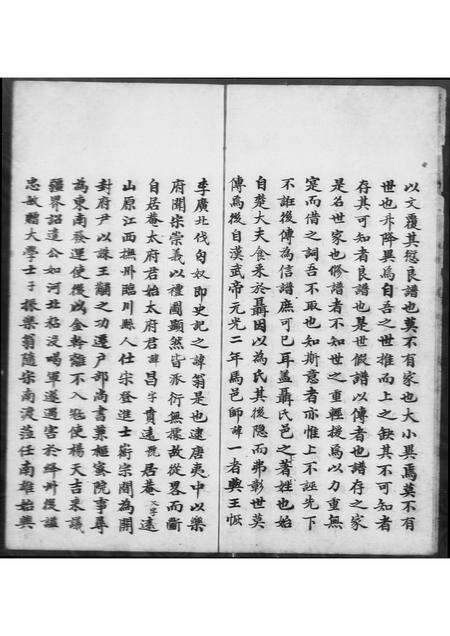 以文覆其愆良譜也莫不有家也大小異焉莫不有
世也升降異焉自吾之世推而上之缺其不可知者
存其可知者良譜也是世假譜以傳者也譜存之家
是名世家也修譜者不知世之重輕援焉以力重無
寔而借之詞吾不取也知斯意者亦惟上不誣先下
不誑後傳為信譜庶可已耳蓋聶氏邑之著姓也始
自楚大夫食采於聶因以為氏其後隐而弗彰世莫
傳焉後自漢武帝元光二年馬邑師諱一者與王恢
李廣北伐匈奴即史記之諱翁是也逮唐夷中以樂
府開宗崇義以禮圖顯然皆派衍無據故從畧而斷
自居菴太府君始太府君諱昌字賁遠號居菴遠
山原江西撫州臨川縣人仕宋登進士蔚宗間為開
封府尹以誅王黼之功遷户部尚書兼樞宻院事尋
為東南發運使後以金幹離不入冦使楊天吉来議
疆界詔遣公如河北犒没喝軍遂遇害於絳州後謚
忠敏贈大學士子振樂翁隨宋南渡蒞任南雄始興